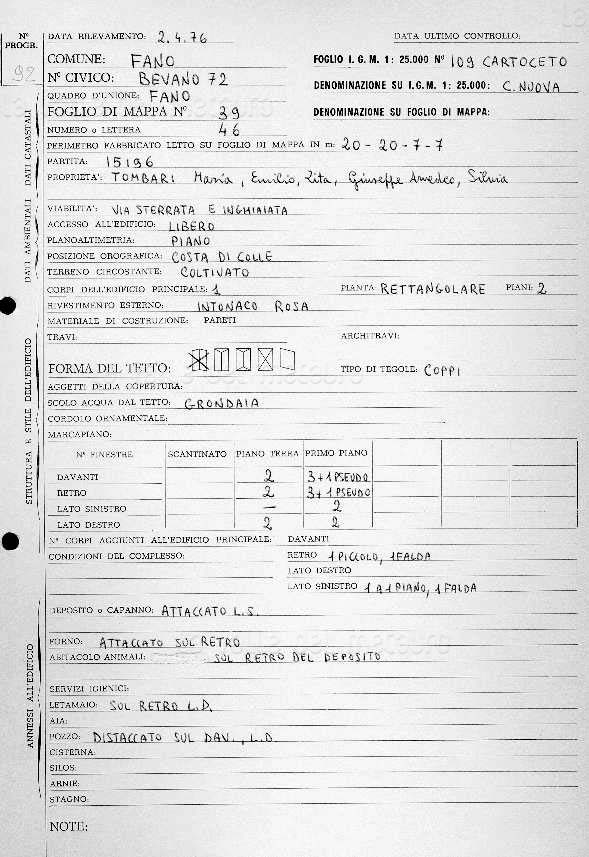 N° PROGR.
92
DATA RILEVAMENTO: 2.4.76
DATA ULTIMO CONTROLLO:
COMUNE: FANO
FOGLIO I. G. M. 1: 25.000 N° 109 CARTOCETO
N° CIVICO: BEVANO 72
DENOMINAZIONE SU I.G.M. 1: 25.000: C. NUOVA
QUADRO D'UNIONE: FANO
FOGLIO DI MAPPA N° 39
DENOMINAZIONE SU FOGLIO DI MAPPA:
NUMERO o LETTERA 46
PERIMETRO FABBRICATO LETTO SU FOGLIO DI MAPPA IN m: 20 - 20 - 7 - 7
PARTITA: 15196
PROPRIETA': TOMBARI Maria, Emilio, Rita, Giuseppe Amedeo, Silvia
DATI CATASTALI
VIABILITA': VIA STERRATA E INGHIAIATA
ACCESSO ALL'EDIFICIO: LIBERO
PLANOALTIMETRIA: PIANO
POSIZIONE OROGRAFICA: COSTA DI COLLE
TERRENO CIRCOSTANTE: COLTIVATO
DATI AMBIENTALI
CORPI DELL'EDIFICIO PRINCIPALE: 1
PIANTA: RETTANGOLARE PIANI: 2
RIVESTIMENTO ESTERNO: INTONACO ROSA
MATERIALE DI COSTRUZIONE: PARETI
TRAVI:
ARCHITRAVI:
FORMA DEL TETTO:
TIPO DI TEGOLE: COPPI
AGGETTI DELLA COPERTURA:
SCOLO ACQUA DAL TETTO: GRONDAIA
CORDOLO ORNAMENTALE:
MARCAPIANO:
STRUTTURA E STILE DELL'EDIFICIO
N° FINESTRE SCANTINATO PIANO TERRA PRIMO PIANO
DAVANTI 2 3+1 PSEUDO
RETRO 2 3+1 PSEUDO
LATO SINISTRO — 2
LATO DESTRO 2 2
N° CORPI AGGIUNTI ALL'EDIFICIO PRINCIPALE: DAVANTI
CONDIZIONI DEL COMPLESSO:
RETRO 1 PICCOLO, 1 FALDA
LATO DESTRO
LATO SINISTRO 1 A 1 PIANO, 1 FALDA
DEPOSITO o CAPANNO: ATTACCATO L.S.
FORNO: ATTACCATO SUL RETRO
ABITACOLO ANIMALI: SUL RETRO DEL DEPOSITO
SERVIZI IGIENICI:
LETAMAIO: SUL RETRO L.D.
AIA:
POZZO: DISTACCATO SUL DAV., L.D.
CISTERNA:
SILOS:
ARNIE:
STAGNO:
ANNESSI ALL'EDIFICIO
NOTE: